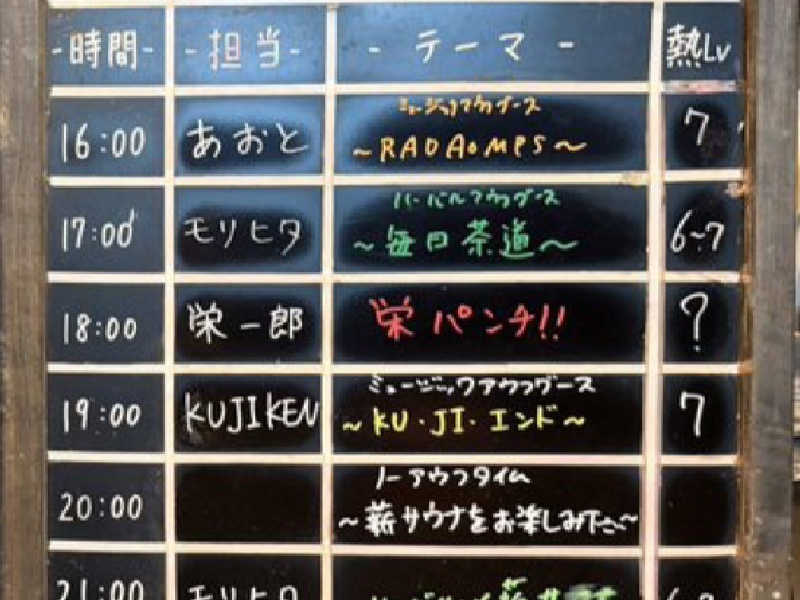 -時間- -担当- - テーマ - 熱Lv
ミュージックアウフグース
16:00 あおと ～RADAOMPS～ 7
ハーバルアウフグース
17:00 モリヒタ ～毎日茶道～ 6~7
18:00 栄一郎 栄パンチ!! ?
ミュージックアウフグース
19:00 KUJIKEN ～KU・JI・エンド～ 7
ノーアウフタイム
20:00 ～薪サウナをお楽しみ下さい～
21:00 モリヒタ